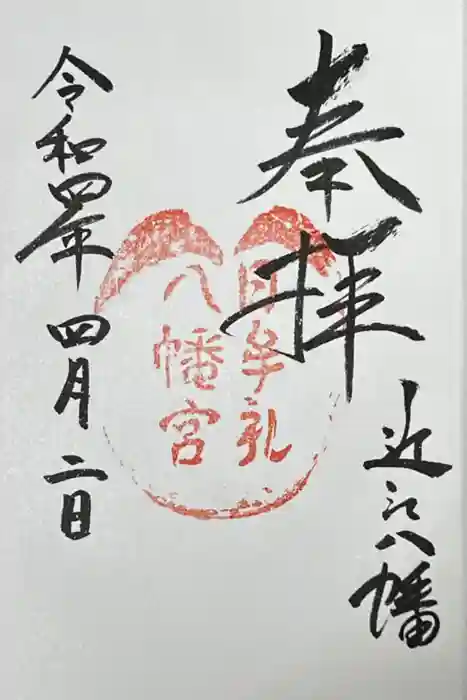 奉拝
近江八幡
日牟礼
八幡宮
令和四年四月二日